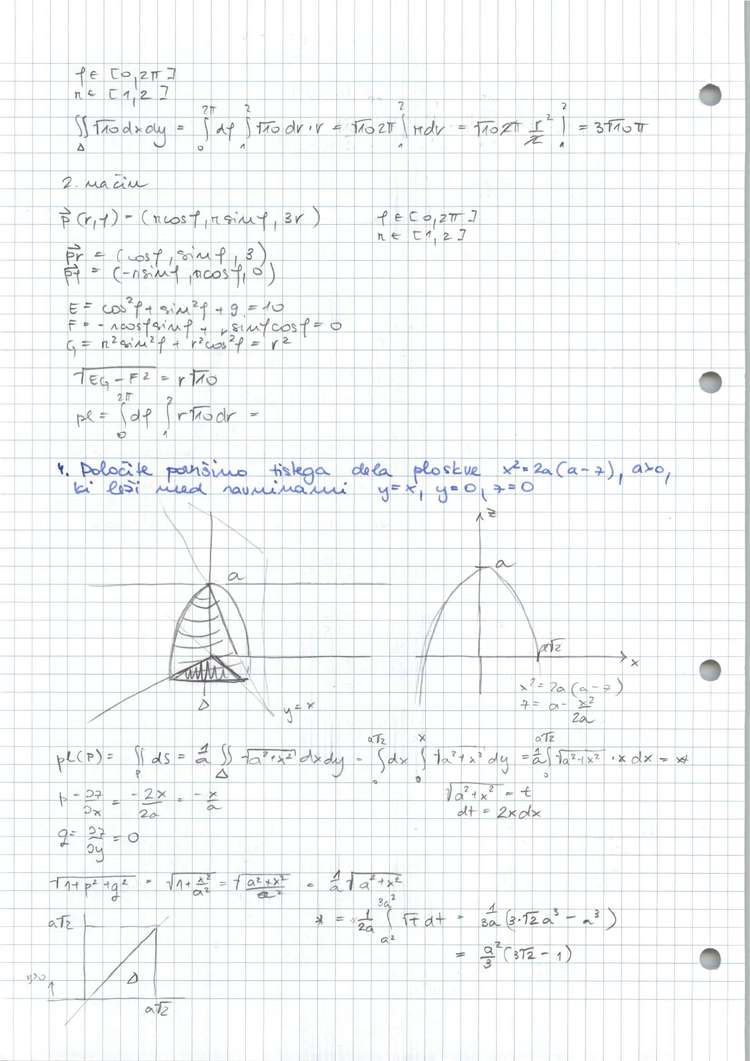 φ ∈ [0, 2π]
r ∈ [1, 2]
∬_Δ √10 dxdy = ∫_0^{2π} dφ ∫_1^2 √10 dr · r = √10 2π ∫_1^2 r dr = √10 2π r²/2 |_1^2 = 3√10 π
2. način
p⃗(r,φ) = (r cosφ, r sinφ, 3r)    φ ∈ [0, 2π]
r ∈ [1, 2]
p⃗r = (cosφ, sinφ, 3)
p⃗φ = (-r sinφ, r cosφ, 0)
E = cos²φ + sin²φ + 9 = 10
F = -r cosφ sinφ + r sinφ cosφ = 0
G = r² sin²φ + r² cos²φ = r²
√(EG - F²) = r√10
pl = ∫_0^{2π} dφ ∫_1^2 r√10 dr =
4. Določite površino tistega dela ploskve x² = 2a(a-z), a>0,
ki leži med ravninami y=x, y=0, z=0
z
a
a
a√2
x
Δ
y=x
x² = 2a(a-z)
z = a - x²/2a
pl(P) = ∬_P dS = 1/a ∬_Δ √(a²+x²) dxdy = ∫_0^{a√2} dx ∫_0^x √(a²+x²) dy = 1/a ∫_0^{a√2} √(a²+x²) · x dx = *
p = ∂z/∂x = -2x/2a = -x/a
√(a²+x²) = t
dt = 2x dx
q = ∂z/∂y = 0
√(1+p²+q²) = √(1+x²/a²) = √((a²+x²)/a²) = 1/a √(a²+x²)
* = 1/2a ∫_{a²}^{3a²} √t dt = 1/3a (3·√2 a³ - a³)
= a²/3 (3√2 - 1)
a√2
Δ
1
a√2